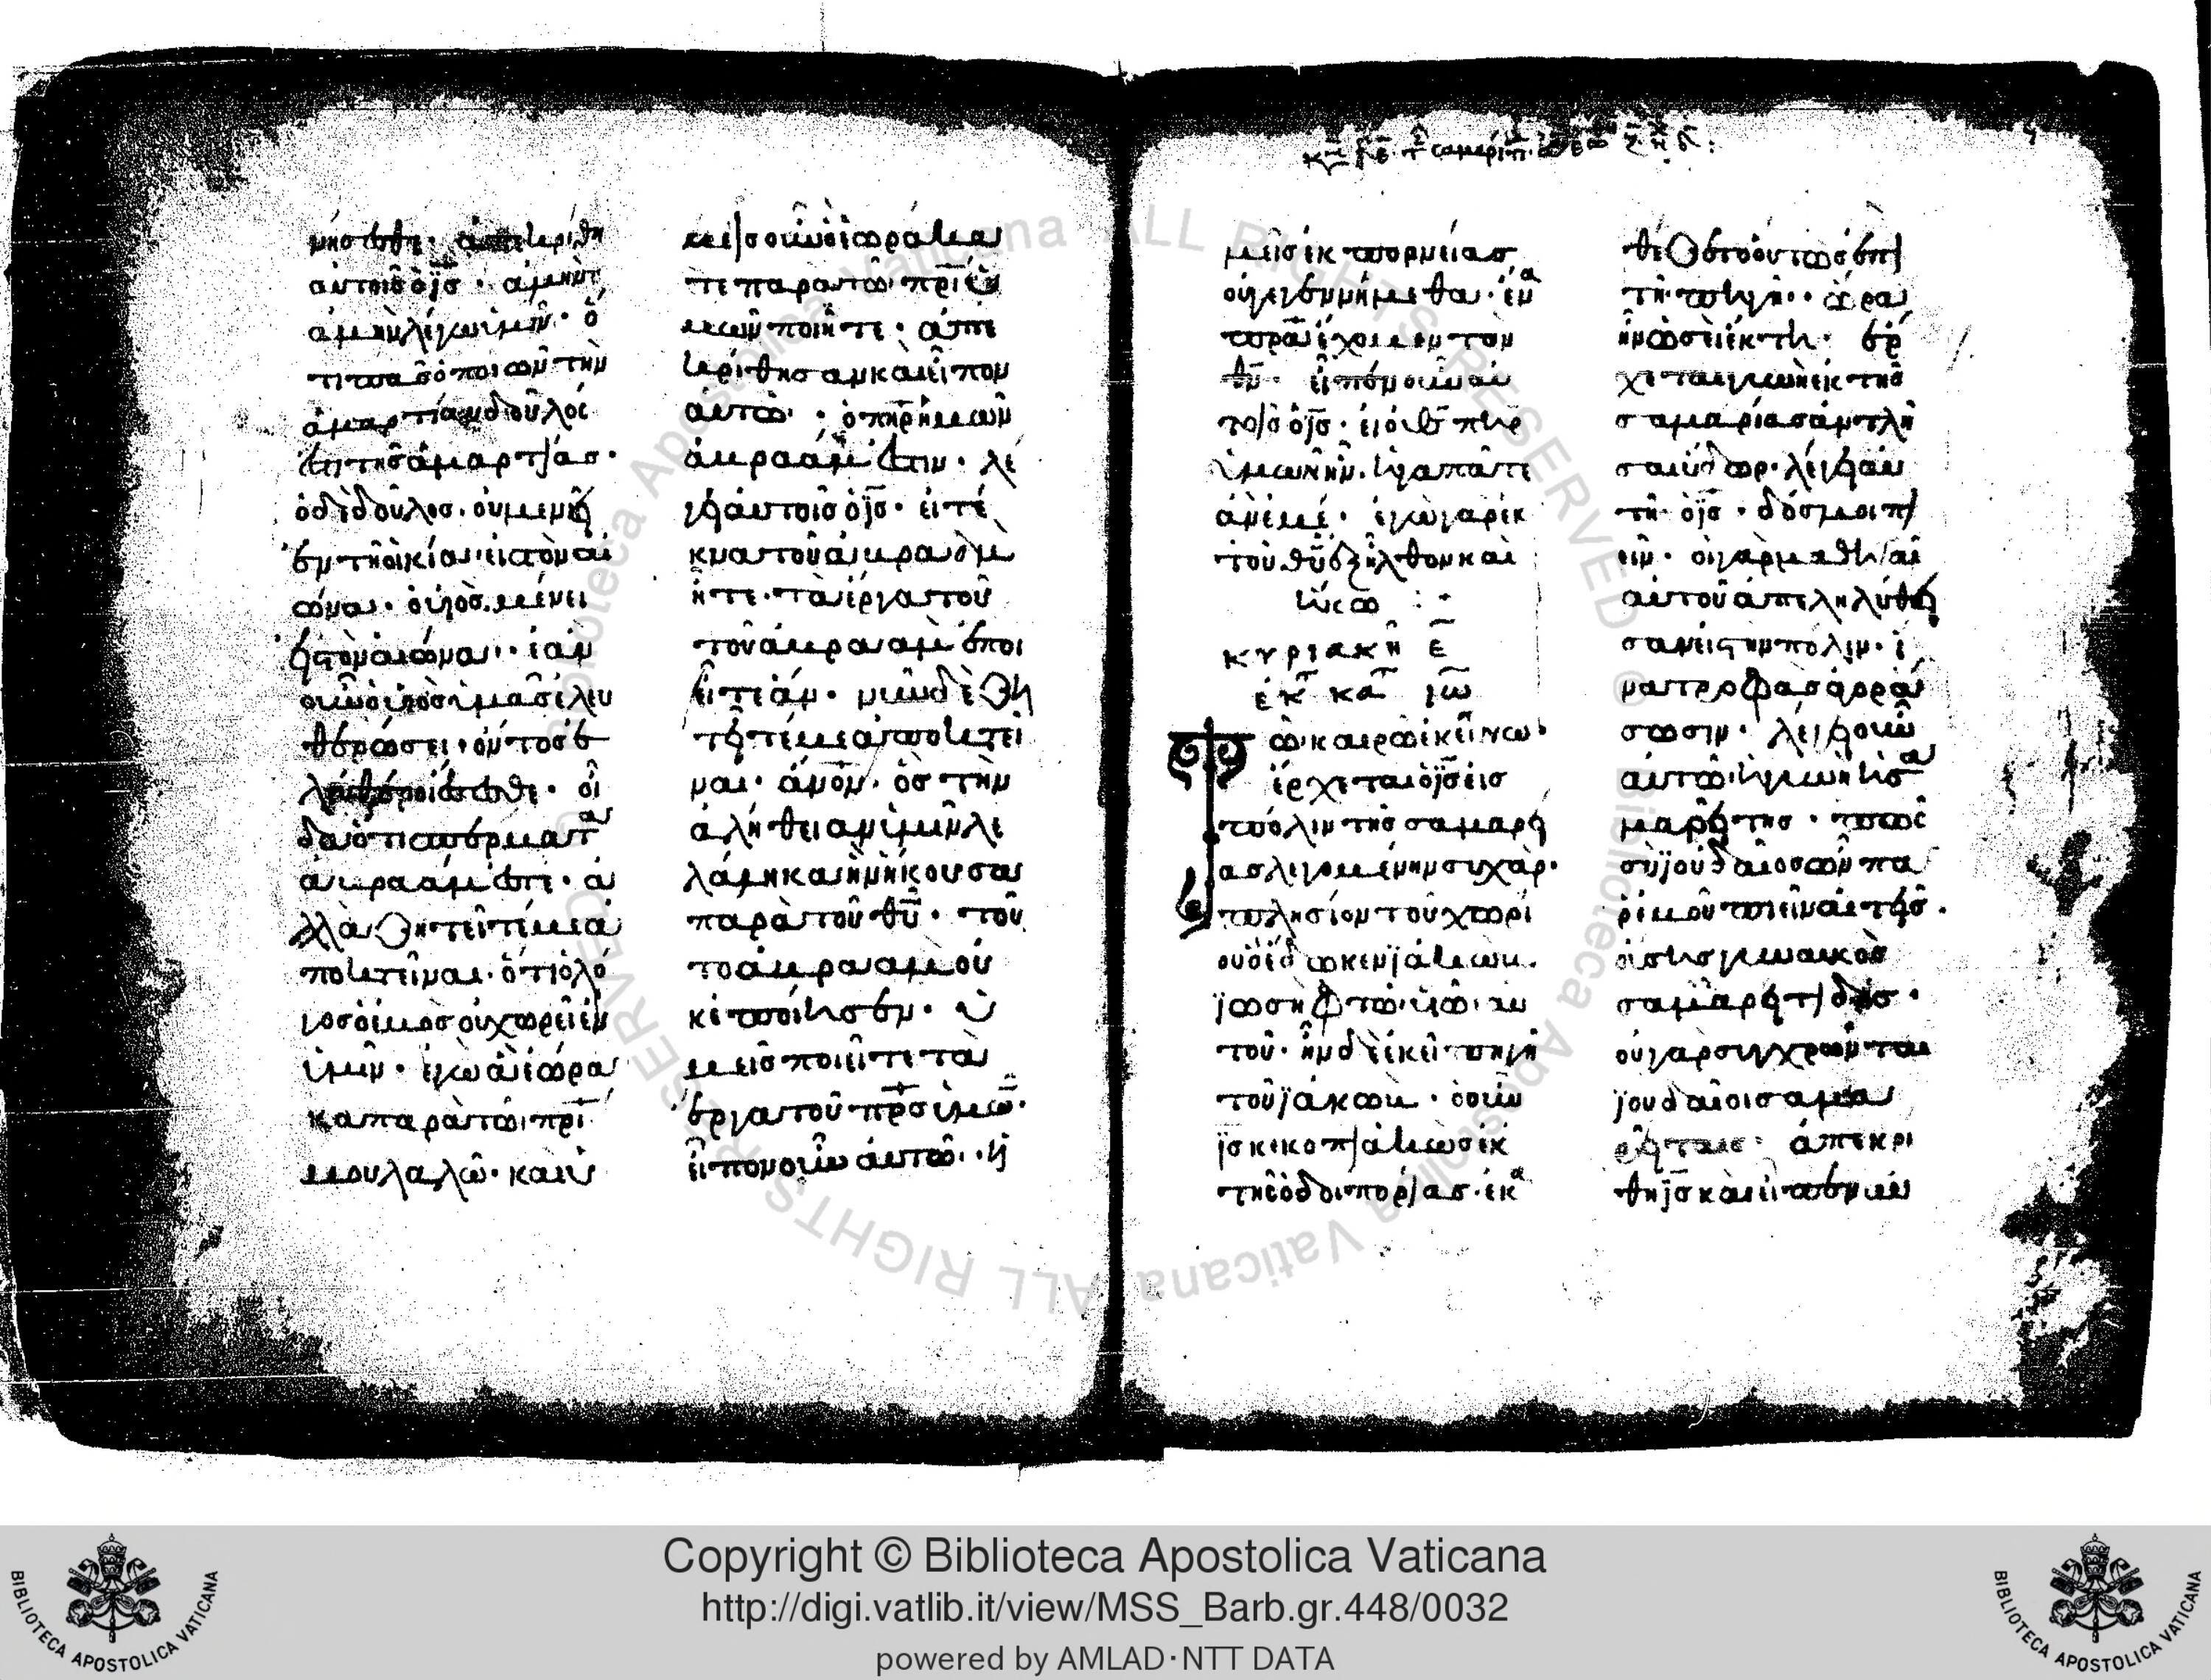 μήσεσθε· ἀπεκρίθη
αυτοῖς ὁ ις̅· ἀμὴν
ἀμὴν λέγω ὑμῖν· ὅ
τι πᾶς ὁ ποιῶν τὴν
ἁμαρτίαν δοῦλός
ἐστι τῆς ἁμαρτίας·
ὁ δὲ δοῦλος. οὐ μένει
ἐν τῆ οἰκία εἰς τὸν αἰ
ῶνα· ὁ υἱὸς μένει
εἰς τὸν αἰῶνα· ἐὰν
οὖν ὁ υἱὸς ὑμᾶς ἐλευ
θερώσει· όντος ἐ
λεύθεροι ἔσεσθε· οἶ
δα ὅτι σπέρμα
ἀβραάμ ἐστε· ἀ
λλὰ ζητεῖτέ με ἀ
ποκτεῖναι· ὅτι ὁ λό
γος ὁ ἐμὸς οὐ χωρεῖ ἐν
ὑμῖν· ἐγὼ ὃ ἑώρα
κα παρὰ τῶ πρι̅
μου λαλῶ· καὶ ὑ
μεῖς οὖν ὃ ἑωράκα
τε παρὰ τῶ πρι̅ ὑ
μῶν ποιῆτε· ἀπε
κρίθησαν καὶ εἶπον
αὐτῶ· ὁ πηρ̅ ἡμῶν
ἀβραάμ ἐστιν· λέ
γει αὐτοῖς ὁ ις̅· εἰ τέ
κνα τοῦ ἀβραὰμ
ἦτε· τὰ ἔργα τοῦ
τοῦ ἀβραὰμ ἐποι
εῖτε ἄν· νῦν δὲ ζη
τεῖτέ με ἀποκτεῖ
ναι· ἀνο̅ν· ὃς τὴν
ἀλήθειαν ὑμῖν λε
λάληκα ἣν ἤκουσα
παρὰ τοῦ θυ̅· τοῦ
το ἀβραὰμ οὐ
κ ἐποίησεν· ὑ
μεῖς ποιεῖτε τὰ
ἔργα τοῦ πρς̅ ὑμῶ̅·
εἶπον οὖν αὐτῶ· ἡ
μεῖς ἐκ πορνείας
οὐ γεγεννήμεθα· ἕνα
πρα̅ ἔχομεν τὸν
θν̅· εἶπεν οὖν αὐ
τοῖς ὁ ις̅· εἰ ὁ θς̅ πηρ̅
ὑμῶν ἦν· ἠγαπᾶτε
ἂν ἐμέ· ἐγὼ γὰρ ἐκ
τοῦ θυ̅ ἐξῆλθον καὶ
ἥκω :·
κυριακῆ ε̅
ἐκ κατ ιω̅
Τῶ καιρῶ ἐκείνω·
ἔρχεται ὁ ις̅ εἰς
πόλιν τῆς σαμαρεί
ας λεγομένην συχάρ·
πλησίον τοῦ χωρί
ου ὃ ἔδωκεν ἰάκωβ.
ἰωσὴφ τῶ υἱῶ αὐ
τοῦ· ἦν δὲ ἐκεῖ πηγὴ
τοῦ ἰάκωβ· ὁ οὖν
ις̅ κεκοπιακὼς ἐκ
τῆς ὁδοιπορίας· ἐκα
θέζετο οὕτως ἐπὶ
τῆ πηγῆ· ὥρα
ἦν ὡσεὶ ἕκτη· ἔρ
χεται γυνὴ ἐκ τῆς
σαμαρίας ἀντλῆ
σαι ὕδωρ· λέγει αὐ
τῆ ὁ ις̅· δός μοι πι
εῖν· οἱ γὰρ μαθηταὶ
αὐτοῦ ἀπεληλύθει
σαν εἰς τὴν πόλιν· ἵ
να τροφὰς ἀγορά
σωσιν· λέγει οὖν
αὐτῶ ἡ γυνὴ ἡ σα
μαρεῖτης· πῶς
σὺ ἰουδαῖος ὢν πα
ρ' ἐμοῦ πιεῖν αἰτεῖς.
οὔσης γυναικὸς
σαμαρείτιδος·
οὐ γὰρ συγχρῶνται
ἰουδαῖοι σαμα
ρείταις· ἀπεκρί
θη ις̅ καὶ εἶπεν αὐ
Copyright © Biblioteca Apostolica Vaticana
http://digi.vatlib.it/view/MSS_Barb.gr.448/0032
powered by AMLAD·NTT DATA
BIBLIOTECA APOSTOLICA VATICANA
BIBLIOTECA APOSTOLICA VATICANA